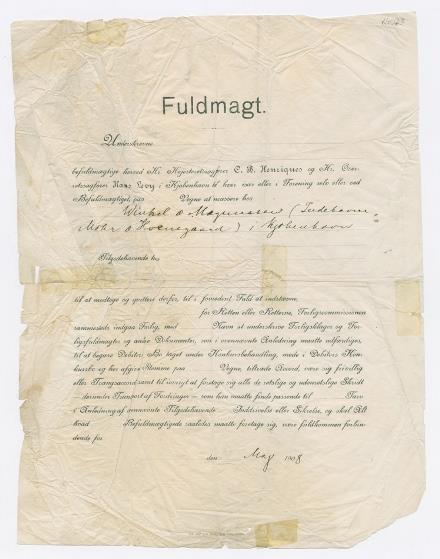 Fuldmagt.
Undertegnede
befuldmægtige herved Hr. Højesteretssagfører C. B. Henriques og Hr. Over-
retssagfører Hans Levy i Kjøbenhavn til hver især eller i Forening selv eller ved
Befuldmægtiget, paa Vegne at inkassere hos
Winkel & Magnussen (Indehavere
Mohr & Kornegaard) i Kjøbenhavn
Tilgodehavende hs.
til at modtage og qvittere derfor, til i fornødent Fald at indstævne
for Retten eller Retterne, Forligscommissionen
sammesteds indgaa Forlig, med Navn at underskrive Forligsklager og For-
ligsfuldmagter og andre Dokumenter, som i ovennævnte Anledning maatte udfærdiges,
til at begære Debitors Bo taget under Konkursbehandling, møde i Debitors Kon-
kursbo og her afgive Stemme paa Vegne, tiltræde Accord, være sig frivillig
eller Tvangsaccord samt til iøvrigt at foretage sig alle de retslige og udenretslige Skridt
— derunder Transport af Fordringer — som han maatte finde passende til Tarv
i Anledning af ovennævnte Tilgodehavende Inddrivelse eller Sikrelse, og skal Alt
hvad Befuldmægtigede saaledes maatte foretage sig, være fuldkommen forbin-
dende for
den May 1908